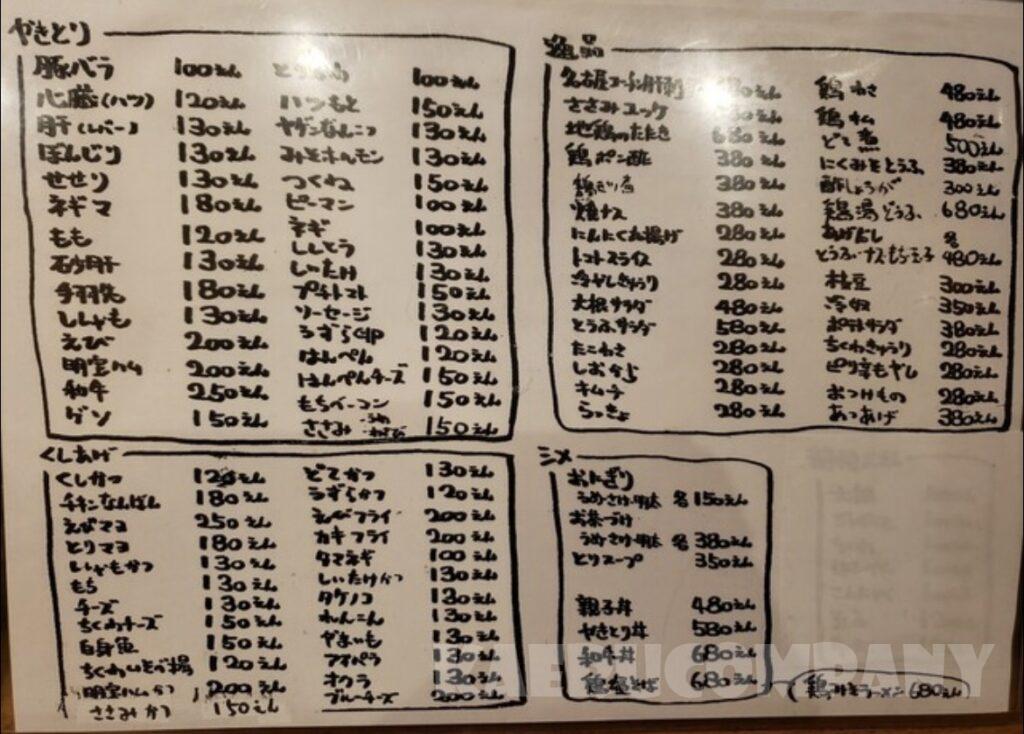 やきとり
豚バラ 100えん
心臓(ハツ) 120えん
肝(レバー) 130えん
ぼんじり 130えん
せせり 130えん
ネギマ 180えん
もも 120えん
砂肝 130えん
手羽先 180えん
ししゃも 130えん
えび 200えん
明宝ハム 200えん
和牛 250えん
ゲソ 150えん
100えん
ハツもと 150えん
ヤゲンなんこつ 130えん
みそホルモン 130えん
つくね 150えん
ピーマン 100えん
ネギ 100えん
ししとう 130えん
しいたけ 130えん
プチトマト 150えん
ソーセージ 130えん
うずら 120えん
はんぺん 120えん
はんぺんチーズ 150えん
もちベーコン 150えん
ささみ うめ わさび 150えん
逸品
名古屋コーチン肝刺
ささみユッケ
地鶏のたたき 680えん
鶏ポン酢 380えん
鶏もつ煮 380えん
焼ナス 380えん
にんにく丸揚げ 280えん
トマトスライス 280えん
冷やしきゅうり 280えん
大根サラダ 480えん
とうふサラダ 580えん
たこわさ 280えん
しおから 280えん
キムチ 280えん
らっきょ 280えん
鶏わさ 480えん
鶏キム 480えん
どて煮 500えん
にくみそとうふ 380えん
酢しょうが 300えん
鶏湯どうふ 680えん
あげだし 各
とうふ・ナス・もち・玉子 480えん
枝豆 300えん
冷奴 350えん
ポテトサラダ 380えん
ちくわきゅうり 280えん
ピリ辛モヤシ 280えん
おつけもの 280えん
あつあげ 380えん
くしあげ
くしかつ 120えん
チキンなんばん 180えん
えびマヨ 250えん
とりマヨ 180えん
ししゃもかつ 130えん
もち 130えん
チーズ 130えん
ちくわチーズ 150えん
白身魚 150えん
ちくわいそべ揚 120えん
明宝ハムかつ 200えん
ささみかつ 150えん
どてかつ 130えん
うずらかつ 120えん
えびフライ 200えん
カキフライ 200えん
タマネギ 100えん
しいたけかつ 130えん
タケノコ 130えん
れんこん 130えん
やまいも 130えん
アスパラ 130えん
オクラ 130えん
ブルーチーズ 200えん
シメ
おにぎり
うめ・さけ・明太 各150えん
お茶づけ
うめ・さけ・明太 各380えん
とりスープ 350えん
親子丼 480えん
やきとり丼 580えん
和牛丼 680えん
鶏塩そば 680えん
ラーメン 680えん
COMPANY